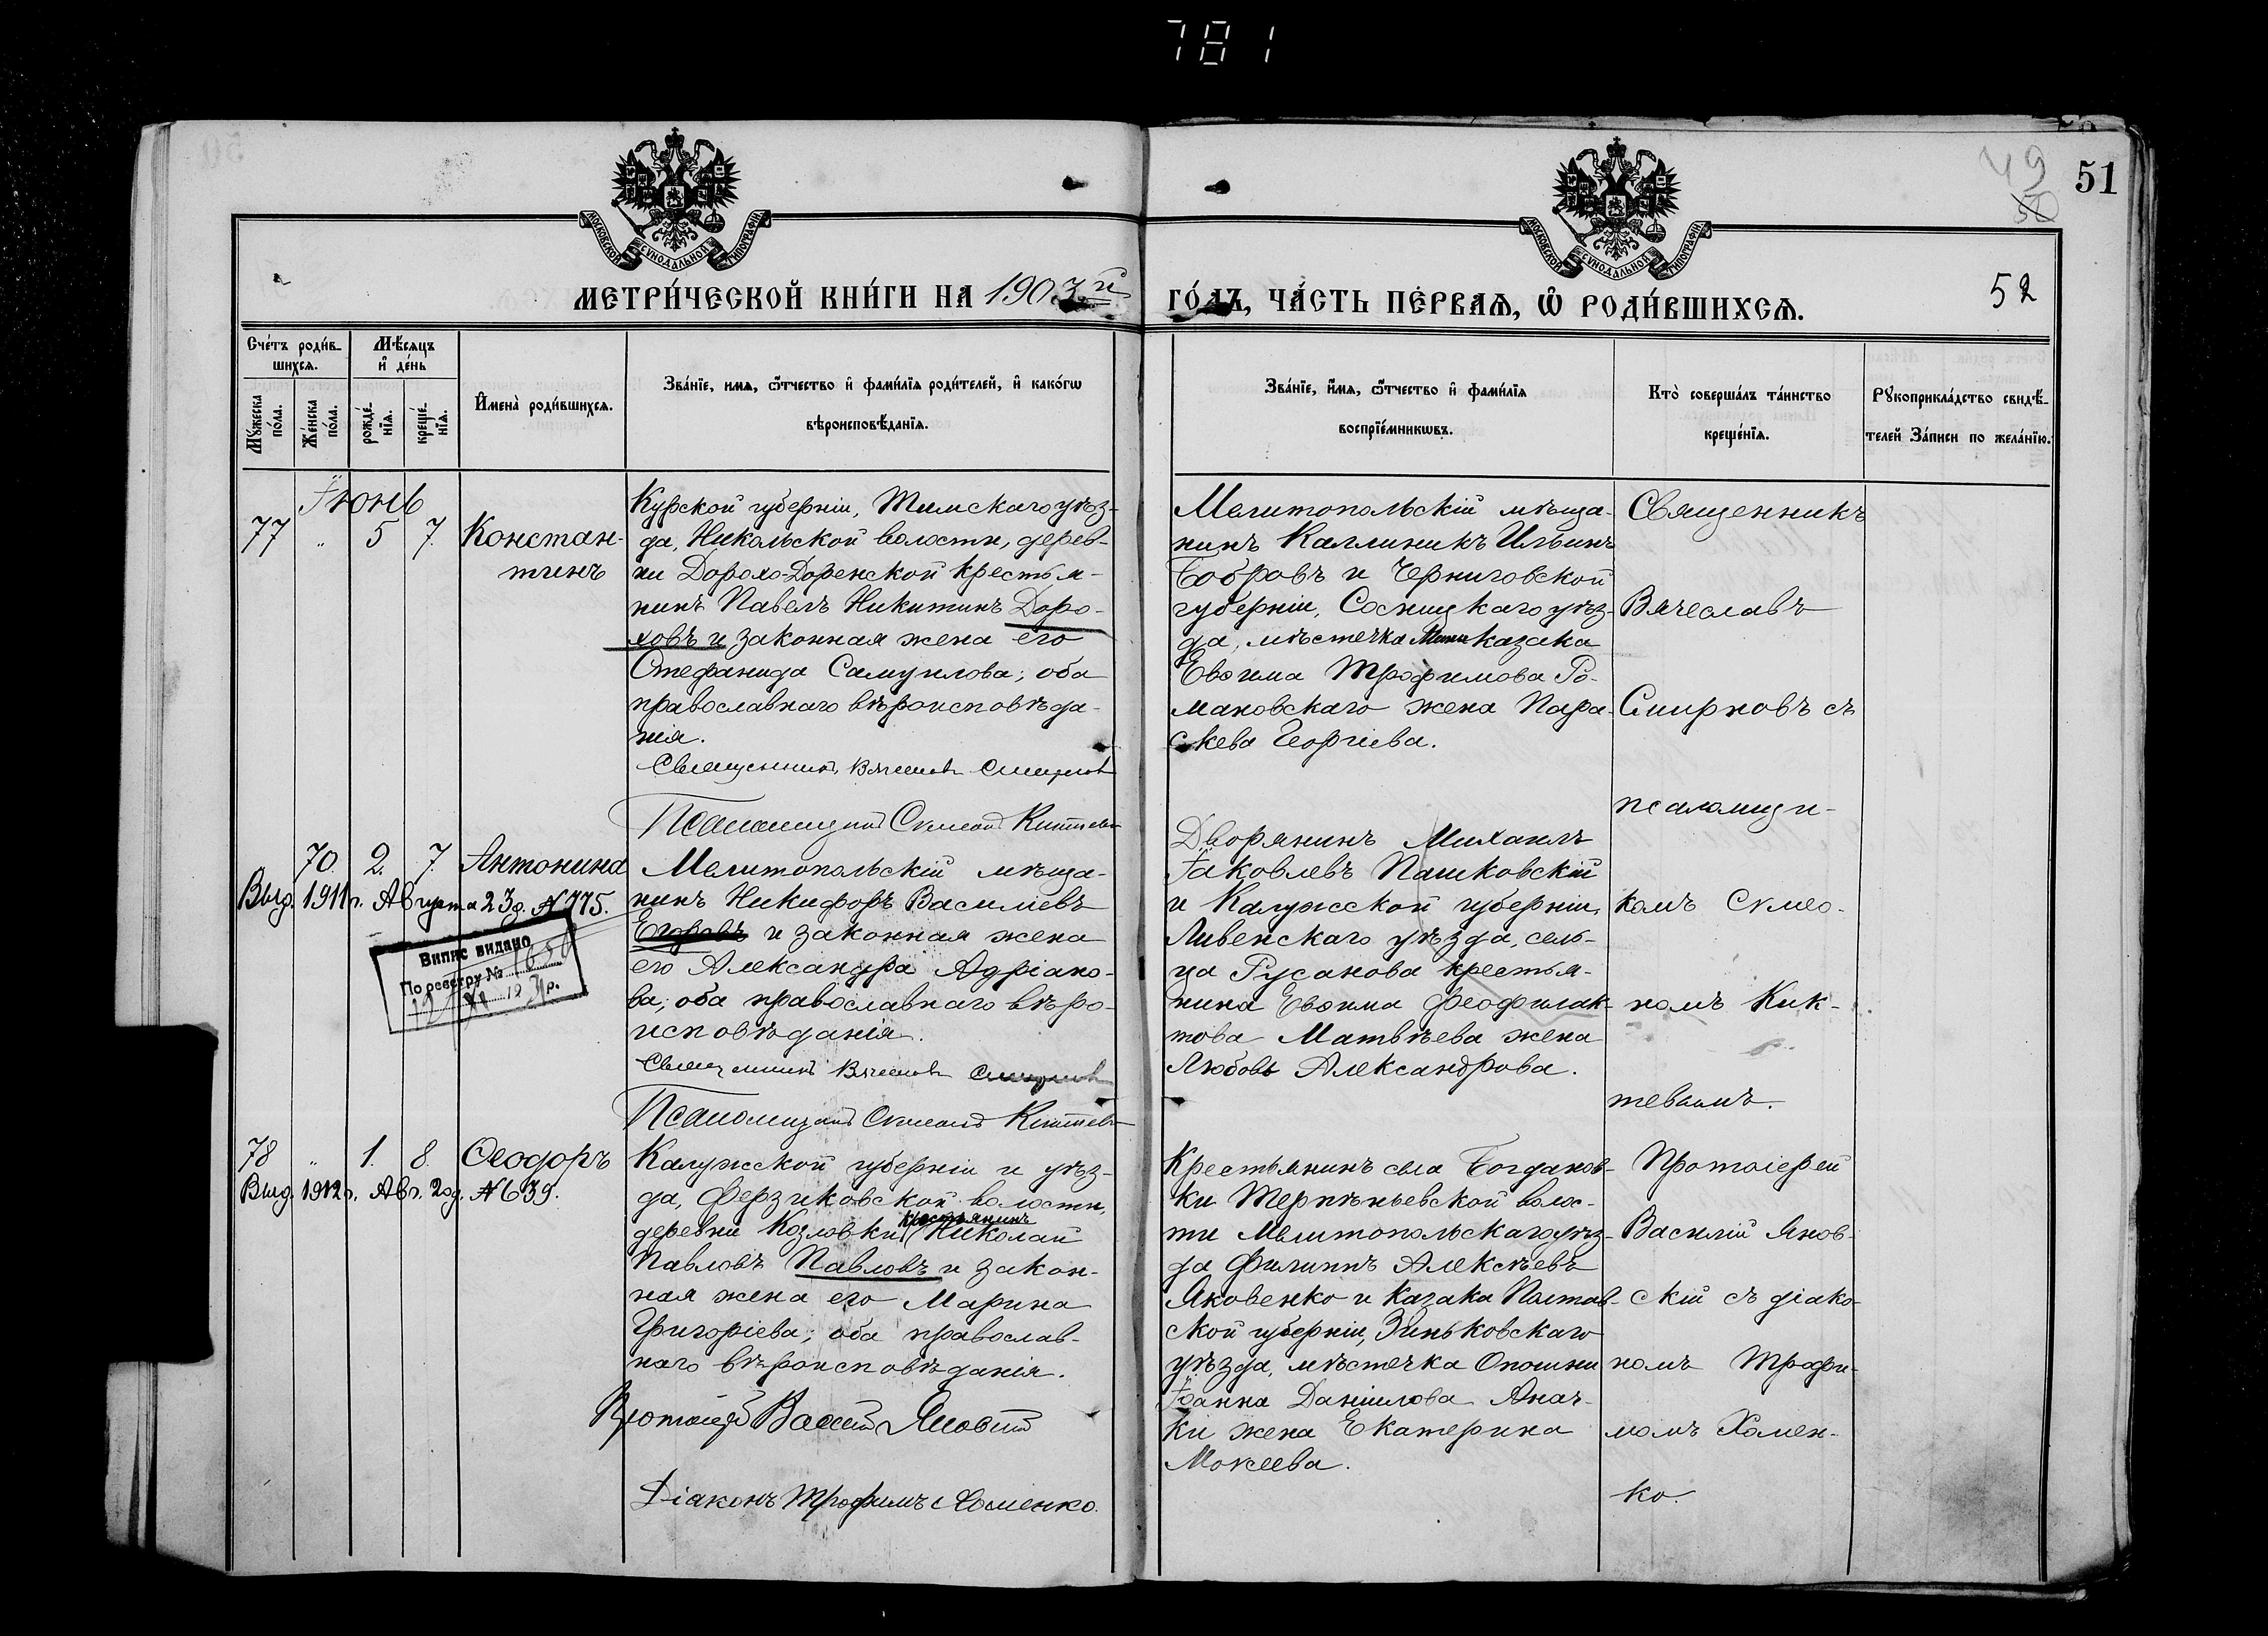 781
49
50
51
52
МОСКОВСКОЙ СѴНОДАЛЬНОЙ ТИПОГРАФІИ
МОСКОВСКОЙ СѴНОДАЛЬНОЙ ТИПОГРАФІИ
МЕТРИ́ЧЕСКОЙ КНИ́ГИ НА 1903й ГО́ДЪ, ЧА́СТЬ ПЕ́РВАѦ, Ѡ҆ РОДИ́ВШИХСѦ.
Сче́тъ роди́в-
шихсѧ.
Мѣ́сѧцъ
и҆ де́нь
Мꙋ́жеска
по́ла.
Же́нска
по́ла.
рожде́-
нїѧ.
креще́-
нїѧ.
И҆мена̀ роди́вшихсѧ.
Зва́нїе, имѧ, ѻ҆́тчество и҆ фами́лїѧ роди́телей, и҆ како́гѡ
вѣроисповѣ́данїѧ.
Зва́нїе, и҆́мѧ, ѻ҆́тчество и҆ фами́лїѧ
воспрїе́мникѡвъ.
Кто̀ соверша́лъ та́инство
креще́нїѧ.
Рꙋкоприкла́дство свидѣ́-
телей За́писи по жела́нїю.
Іюнь
77 " 5 7. Констан-
тинъ
Курской губерніи, Тимскаго уѣз-
да, Никольской волости, дерев-
ни Дорохо-Доренской крестья-
нинъ Павелъ Никитинъ Доро-
ховъ и законная жена его
Стефанида Самуилова; оба
православнаго вѣроисповѣда-
нія.
Священникъ Вячеславъ Смирновъ
Псаломщикъ Симеонъ Киктевъ
Мелитопольскій мѣща-
нинъ Каллиникъ Ильинъ
Бобровъ и Черниговской
губерніи, Сосницкаго уѣз-
да, мѣстечка Мены казака
Евѳима Трофимова Ро-
мановскаго жена Пара-
скева Георгіева.
Священникъ
Вячеславъ
Смирновъ съ
псаломщи-
комъ Симео-
номъ Кик-
тевымъ.
70. 2. 7. Антонина
Выд. 1911 г. Августа 23 д. № 775.
Випис видано
По реєстру №
Мелитопольскій мѣща-
нинъ Никифоръ Василіевъ
Егоровъ и законная жена
его Александра Адріано-
ва; оба православнаго вѣро-
исповѣданія.
Священникъ Вячеславъ Смирновъ
Псаломщикъ Симеонъ Киктевъ
Дворянинъ Михаилъ
Іаковлевъ Пашковскій
и Калужской губерніи,
Ливенскаго уѣзда, сель-
ца Русанова крестья-
нина Евѳима Феофилак-
това Матвѣева жена
Любовь Александрова.
78 " 1. 8. Ѳеодоръ
Выд. 1912 г. Авг. 20 д. № 639.
Калужской губерніи и уѣз-
да, Ферзиковской волости,
деревни Козловки крестьянинъ Николай
Павловъ Павловъ и закон-
ная жена его Марина
Григоріева; оба православ-
наго вѣроисповѣданія.
Протоіерей Василій Яновскій
Діаконъ Трофимъ Хоменко.
Крестьянинъ села Богданов-
ки Терпѣньевской волос-
ти Мелитопольскаго уѣз-
да Филиппъ Алексѣевъ
Яковенко и казака Полтав-
ской губерніи, Зиньковскаго
уѣзда, мѣстечка Опошни
Іоанна Даніилова
жена Екатерина
Мокеева.
Протоіерей
Василій Янов-
скій съ діако-
номъ Трофи-
момъ Хомен-
ко.